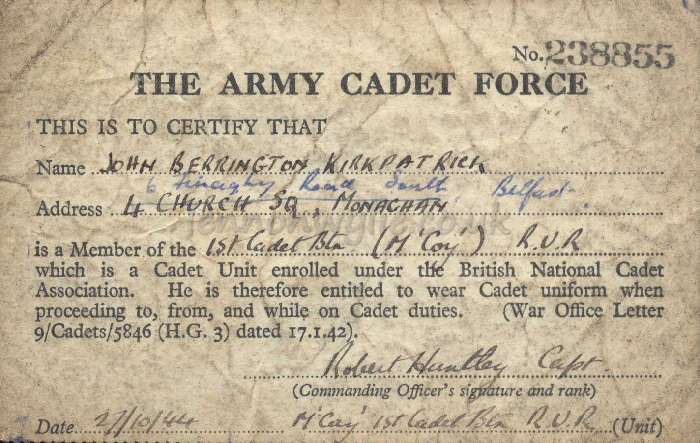 No. 238855
THE ARMY CADET FORCE
THIS IS TO CERTIFY THAT
Name JOHN BERRINGTON KIRKPATRICK
6 Road South, Belfast.
Address 4 CHURCH SQ, MONAGHAN
is a Member of the 1st Cadet Btn (M'Coy') R.U.R
which is a Cadet Unit enrolled under the British National Cadet
Association. He is therefore entitled to wear Cadet uniform when
proceeding to, from, and while on Cadet duties. (War Office Letter
9/Cadets/5846 (H.G. 3) dated 17.1.42).
Robert Huntley Capt.
(Commanding Officer's signature and rank)
Date 27/10/44 M'Coy' 1st Cadet Btn R.U.R. (Unit)